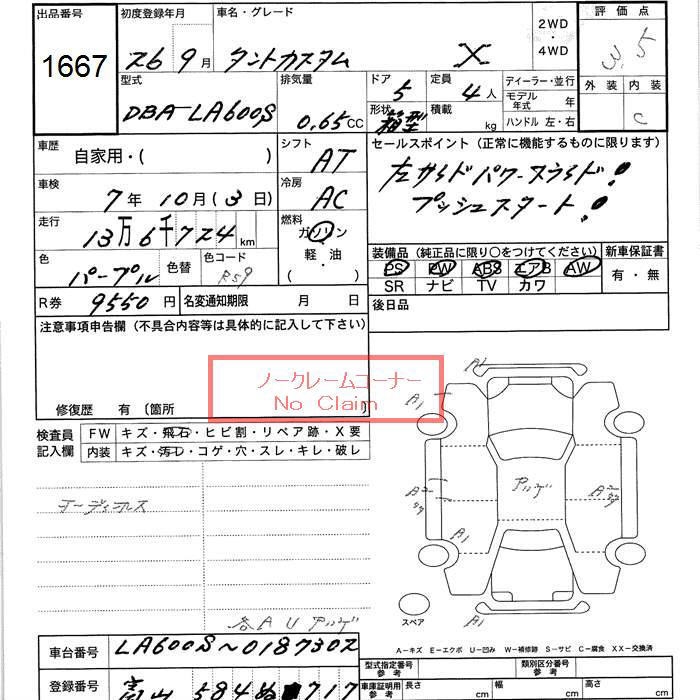 出品番号 初度登録年月 車名・グレード 2WD・4WD 評価点
1667 26 9月 タントカスタム X 3.5
型式 排気量 ドア 定員 ディーラー・並行 外装 内装
DBA-LA600S 0.65CC 5 4人 モデル年式 年 C
形状 箱型 積載 kg ハンドル 左・右
車歴 自家用・( ) シフト AT セールスポイント (正常に機能するものに限ります)
車検 7年 10月 (3日) 冷房 AC 左サイドパワースライド!
プッシュスタート!
走行 13万6千724km 燃料 ガソリン・軽・油 ( )
装備品 (純正品に限り○をつけてください) 新車保証書
色 パープル 色替 色コード R59 PS PW ABS エアB AW 有・無
SR ナビ TV カワ
R券 9550円 名変通知期限 月 日 後日品
注意事項申告欄 (不具合内容等は具体的に記入して下さい)
ノークレームコーナー
No Claim
修復歴 有 (箇所 )
検査員記入欄 FW キズ・飛石・ヒビ割・リペア跡・X要
内装 キズ・汚レ・コゲ・穴・スレ・キレ・破レ
オーディオレス
A1
A1
A1
A1
スペア
A-キズ E-エクボ U-凹み W-補修跡 S-サビ C-腐食 XX-交換済
車台番号 LA600S~0187302
型式指定番号 参考 類別区分番号 参考
登録番号 富山 584 717
車庫証明用 参考 長さ cm 幅 cm 高さ cm